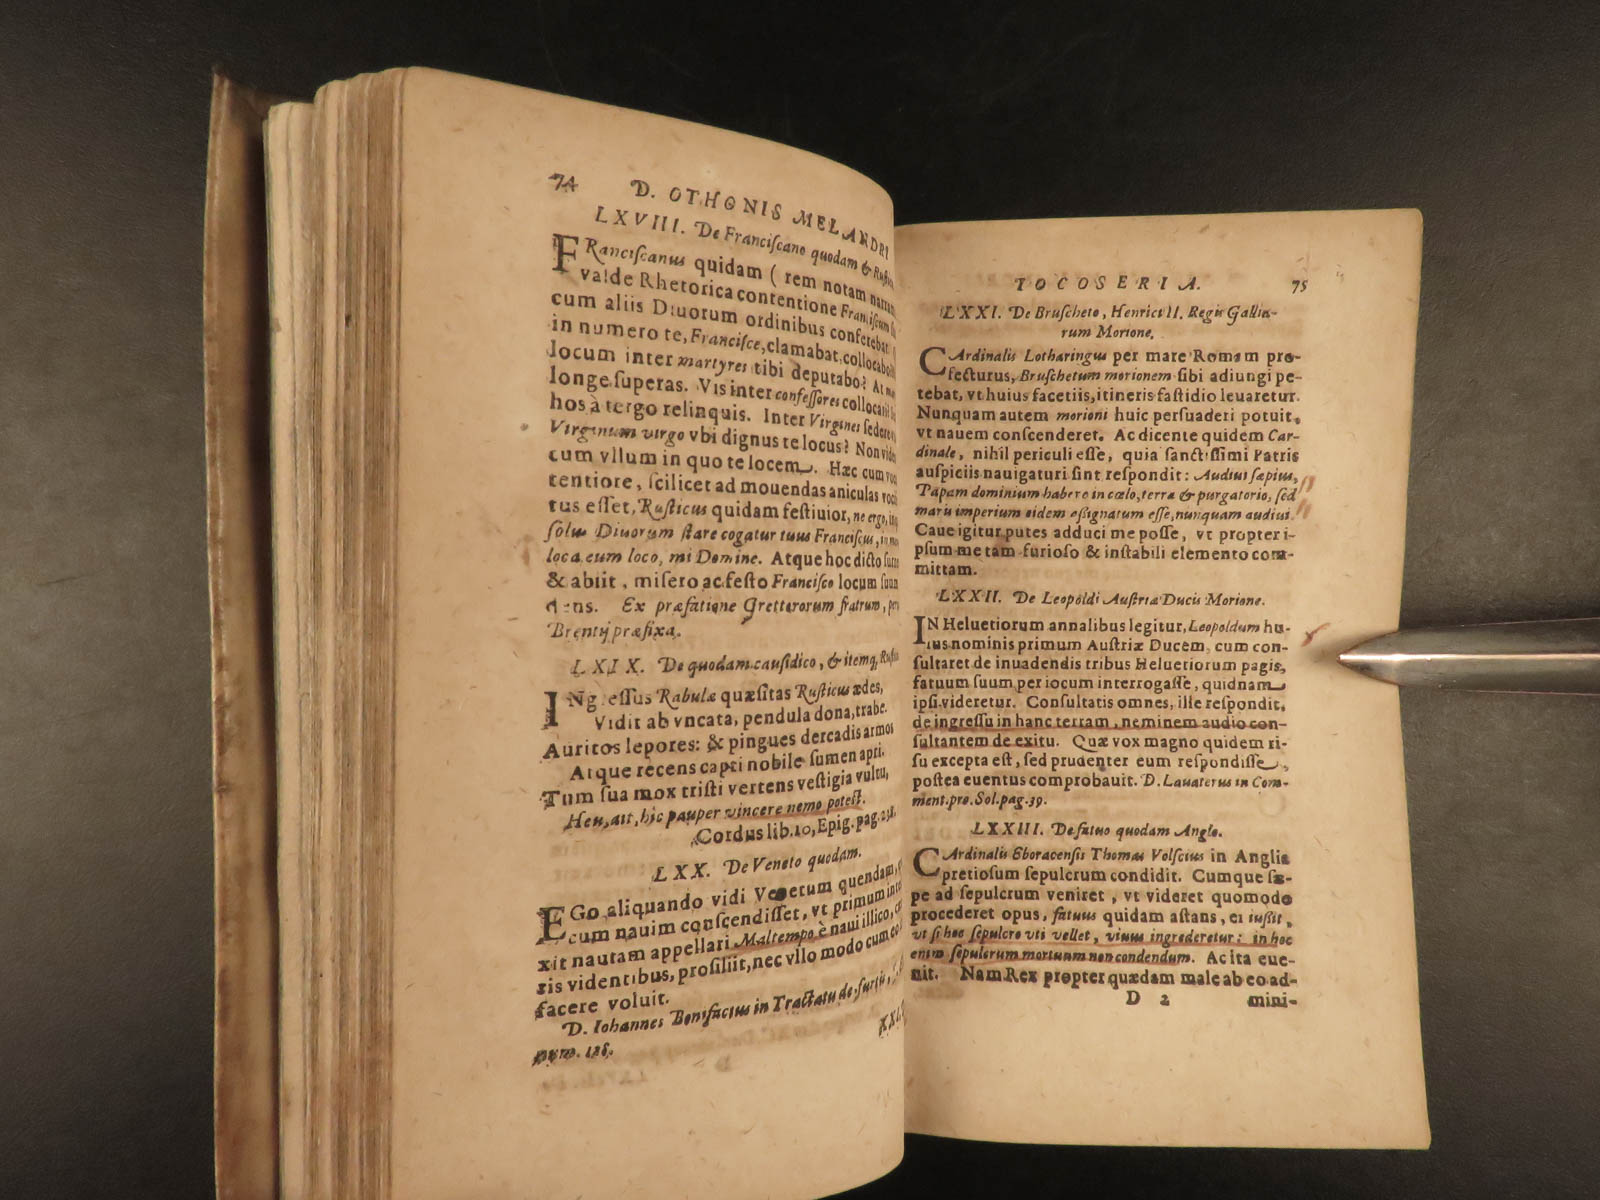 74 D. OTHONIS MELANDRI
LXVIII. De Franciſcano quodam & Ruſtic
FRanciſcanus quidam ( rem notam narram
valde Rhetorica contentione Franciſcum
cum aliis Diuorum ordinibus conferebat.
in numero te, Franciſce, clamabat, collocabo?
locum inter martyres tibi deputabo? At
longe ſuperas. Vis inter confeſſores collocari?
hos à tergo relinquis. Inter Virgines ſedere
Virginum virgo vbi dignus te locus? Non video
cum vllum in quo te locem. Hæc cum
tentiore, ſcilicet ad mouendas aniculas voci
tus eſſet, Ruſticus quidam feſtiuior, ne ergo, inq
ſolus Diuorum ſtare cogatur tuus Franciſcus, in
loca eum loco, mi Domine. Atque hoc dicto
& abiit, miſero ac feſto Franciſco locum ſuum
dans. Ex præfatione Gretterorum fratrum,
Brentij præfixa.
LXIX. De quodam cauſidico, & itemq, Ruſtic
INgreſſus Rabulæ quæſitas Ruſticus ædes,
Vidit ab vncata, pendula dona, trabe.
Auritos lepores: & pingues dercadis armos
Atque recens capti nobile ſumen apri.
Tum ſua mox triſti vertens veſtigia vultu,
Heu, ait, hic pauper vincere nemo poteſt.
Cordus lib. 10, Epig. pag. 238.
LXX. De Veneto quodam.
EGo aliquando vidi Venetum quendam,
cum nauim conſcendiſſet, vt primum
xit nautam appellari Maltempo è naui illico,
ris videntibus, proſiliit, nec vllo modo cum eo
facere voluit.
D. Iohannes Bonifacius in Tractatu de furtis,
num. 128.
75 IOCOSERIA.
LXXI. De Bruſcheto, Henrici II. Regis Gallia-
rum Morione,
CArdinalis Lotharingus per mare Romam pro-
fecturus, Bruſchetum morionem ſibi adiungi pe-
tebat, vt huius facetiis, itineris faſtidio leuaretur.
Nunquam autem morioni huic perſuaderi potuit,
vt nauem conſcenderet. Ac dicente quidem Car-
dinale, nihil periculi eſſe, quia ſanctiſſimi Patris
auſpiciis nauigaturi ſint reſpondit: Audiui ſæpius,
Papam dominium habere in cœlo, terra & purgatorio, ſed
maru imperium eidem aßignatum eſſe, nunquam audiui.
Caue igitur putes adduci me poſſe, vt propter i-
pſum me tam furioſo & inſtabili elemento com-
mittam.
LXXII. De Leopoldi Auſtriæ Ducis Morione.
IN Heluetiorum annalibus legitur, Leopoldum hu-
ius nominis primum Auſtriæ Ducem, cum con-
ſultaret de inuadendis tribus Heluetiorum pagis,
fatuum ſuum per iocum interrogaſſe, quidnam
ipſi videretur. Conſultatis omnes, ille reſpondit,
de ingreſſu in hanc terram, neminem audio con-
ſultantem de exitu. Quæ vox magno quidem ri-
ſu excepta eſt, ſed prudenter eum reſpondiſſe,
poſtea euentus comprobauit. D. Lauaterus in Com-
ment. pro. Sol. pag. 39.
LXXIII. De fatuo quodam Anglo.
CArdinalis Eboracenſis Thomas Volſcius in Anglia
pretioſum ſepulcrum condidit. Cumque ſæ-
pe ad ſepulcrum veniret, vt videret quomodo
procederet opus, fatuus quidam aſtans, ei iuſſit,
vt ſi hoc ſepulcro vti vellet, viuus ingrederetur: in hoc
enim ſepulcrum mortuum non condendum. Ac ita eue-
nit. Nam Rex propter quædam male ab eo ad-
D 2 mini-